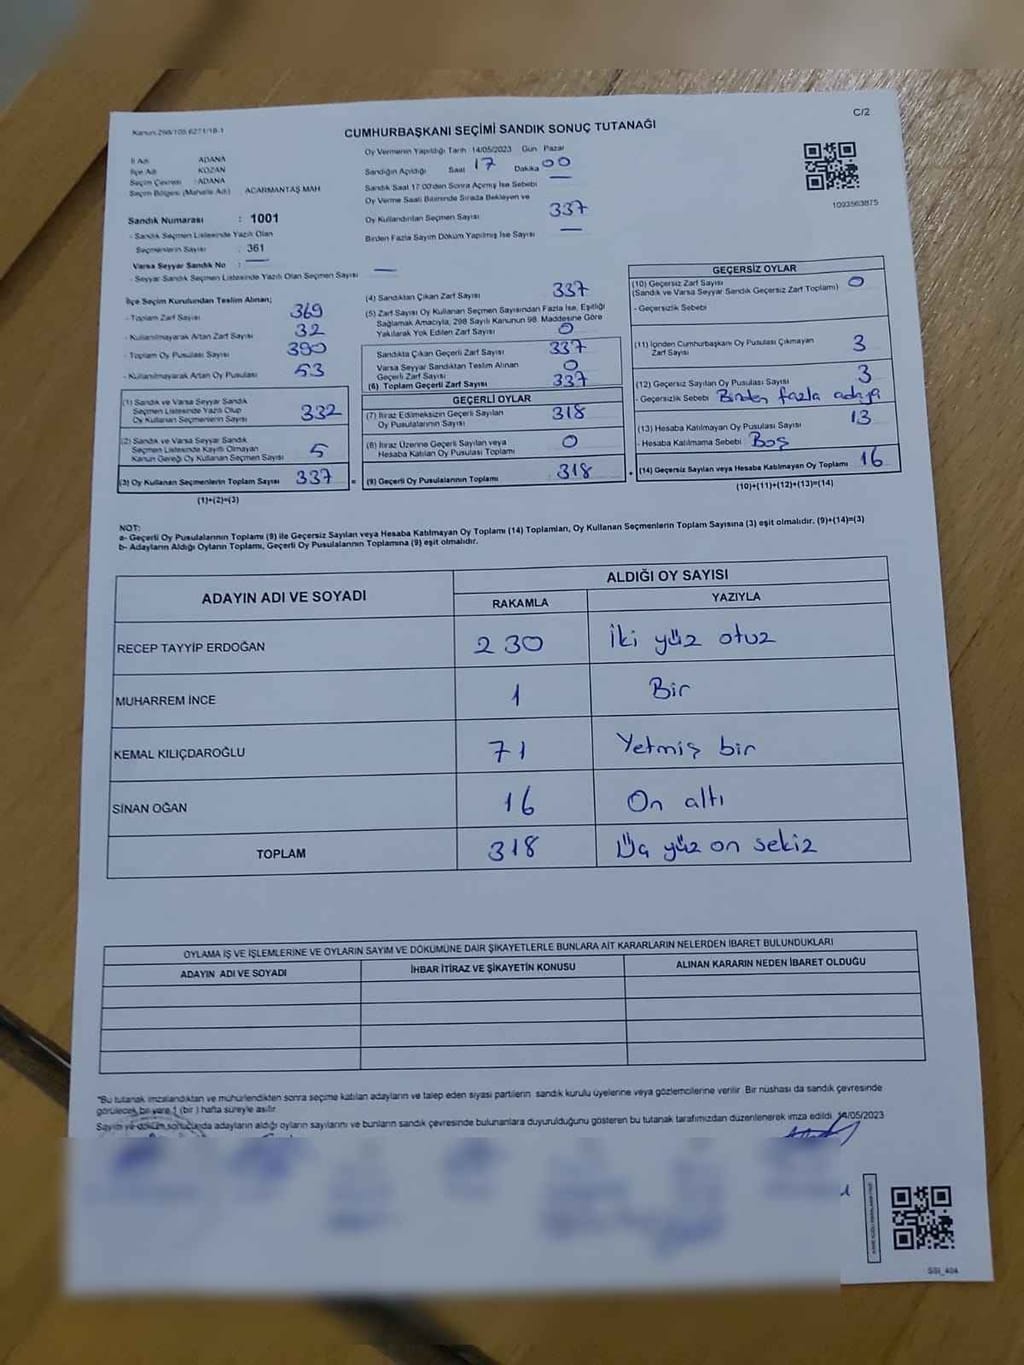 Kanun:298/105,6271/18-1
C/2
CUMHURBAŞKANI SEÇİMİ SANDIK SONUÇ TUTANAĞI
İl Adı ADANA
İlçe Adı KOZAN
Seçim Çevresi : ADANA
Seçim Bölgesi (Mahalle Adı) ACARMANTAŞ MAH
Sandık Numarası : 1001
- Sandık Seçmen Listesinde Yazılı Olan
Seçmenlerin Sayısı : 361
Varsa Seyyar Sandık No : —
- Seyyar Sandık Seçmen Listesinde Yazılı Olan Seçmen Sayısı —
Oy Vermenin Yapıldığı Tarih 14/05/2023 Gün Pazar
Sandığın Açıldığı Saat 17 Dakika 00
Sandık Saat 17:00'den Sonra Açımış İse Sebebi —
Oy Verme Saati Bitiminde Sırada Bekleyen ve
Oy Kullandırılan Seçmen Sayısı 337
Birden Fazla Sayım Döküm Yapılmış İse Sayısı —
1093563875
İlçe Seçim Kurulundan Teslim Alınan;
- Toplam Zarf Sayısı 369
- Kullanılmayarak Artan Zarf Sayısı 32
- Toplam Oy Pusulası Sayısı 390
- Kullanılmayarak Artan Oy Pusulası 53
(1) Sandık ve Varsa Seyyar Sandık
Seçmen Listesinde Yazılı Olup
Oy Kullanan Seçmenlerin Sayısı 332
(2) Sandık ve Varsa Seyyar Sandık
Seçmen Listesinde Kayıtlı Olmayan
Kanun Gereği Oy Kullanan Seçmen Sayısı 5
(3) Oy Kullanan Seçmenlerin Toplam Sayısı 337 =
(1)+(2)=(3)
(4) Sandıktan Çıkan Zarf Sayısı 337
(5) Zarf Sayısı Oy Kullanan Seçmen Sayısından Fazla İse, Eşitliği
Sağlamak Amacıyla, 298 Sayılı Kanunun 98. Maddesine Göre
Yakılarak Yok Edilen Zarf Sayısı 0
Sandıkta Çıkan Geçerli Zarf Sayısı 337
Varsa Seyyar Sandıktan Teslim Alınan
Geçerli Zarf Sayısı 0
(6) Toplam Geçerli Zarf Sayısı 337
GEÇERLİ OYLAR
(7) İtiraz Edilmeksizin Geçerli Sayılan
Oy Pusulalarının Sayısı 318
(8) İtiraz Üzerine Geçerli Sayılan veya
Hesaba Katılan Oy Pusulası Toplamı 0
(9) Geçerli Oy Pusulalarının Toplamı 318 +
GEÇERSİZ OYLAR
(10) Geçersiz Zarf Sayısı 0
(Sandık ve Varsa Seyyar Sandık Geçersiz Zarf Toplamı)
- Geçersizlik Sebebi
(11) İçinden Cumhurbaşkanı Oy Pusulası Çıkmayan
Zarf Sayısı 3
(12) Geçersiz Sayılan Oy Pusulası Sayısı 3
- Geçersizlik Sebebi Birden fazla adaya
(13) Hesaba Katılmayan Oy Pusulası Sayısı 13
- Hesaba Katılmama Sebebi Boş
(14) Geçersiz Sayılan veya Hesaba Katılmayan Oy Toplamı 16
(10)+(11)+(12)+(13)=(14)
NOT:
a- Geçerli Oy Pusulalarının Toplamı (9) ile Geçersiz Sayılan veya Hesaba Katılmayan Oy Toplamı (14) Toplamları, Oy Kullanan Seçmenlerin Toplam Sayısına (3) eşit olmalıdır. (9)+(14)=(3)
b- Adayların Aldığı Oyların Toplamı, Geçerli Oy Pusulalarının Toplamına (9) eşit olmalıdır.
ADAYIN ADI VE SOYADI
ALDIĞI OY SAYISI
RAKAMLA YAZIYLA
RECEP TAYYİP ERDOĞAN 230 İki yüz otuz
MUHARREM İNCE 1 Bir
KEMAL KILIÇDAROĞLU 71 Yetmiş bir
SİNAN OĞAN 16 On altı
TOPLAM 318 Üç yüz on sekiz
OYLAMA İŞ VE İŞLEMLERİNE VE OYLARIN SAYIM VE DÖKÜMÜNE DAİR ŞİKAYETLERLE BUNLARA AİT KARARLARIN NELERDEN İBARET BULUNDUKLARI
ADAYIN ADI VE SOYADI İHBAR İTİRAZ VE ŞİKAYETİN KONUSU ALINAN KARARIN NEDEN İBARET OLDUĞU
"Bu tutanak imzalandıktan ve mühürlendikten sonra seçime katılan adayların ve talep eden siyasi partilerin sandık kurulu üyelerine veya gözlemcilerine verilir. Bir nüshası da sandık çevresinde
görülecek bir yere 1 (bir) hafta süreyle asılır.
Sayım ve döküm sonucunda adayların aldığı oyların sayılarını ve bunların sandık çevresinde bulunanlara duyurulduğunu gösteren bu tutanak tarafımızdan düzenlenerek imza edildi. 14/05/2023
SSI_404